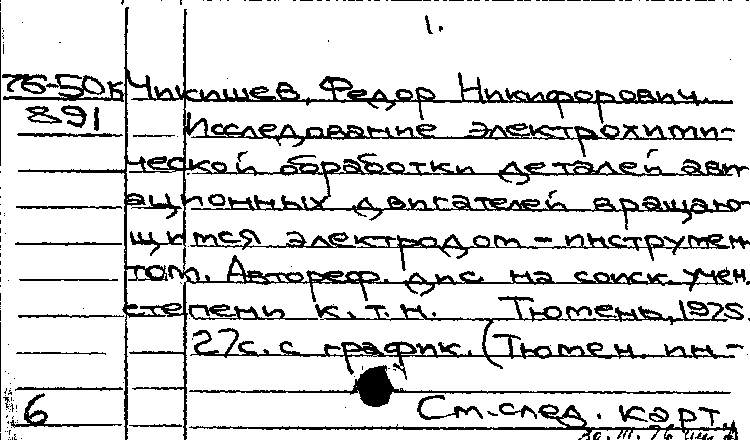 1.
76-50к Чикишев, Федор Никифорович.
891 Исследование электрохими-
ческой обработки деталей ави
ационных двигателей вращаю-
щимся электродом-инструмен
том. Автореф. дис на соиск. учен.
степени к.т.н. Тюмень, 1975.
27с. с график. (Тюмен. ин-
6 См. след. карт.